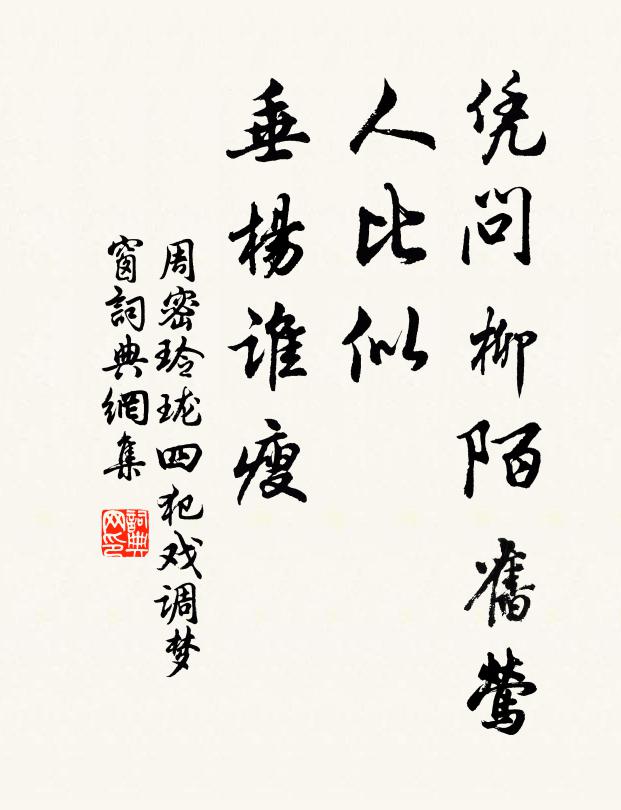 凭问柳陌舊鶯
人比似
垂楊誰瘦
周密玲珑四犯戏调梦
窗詞典網集
詞典网印